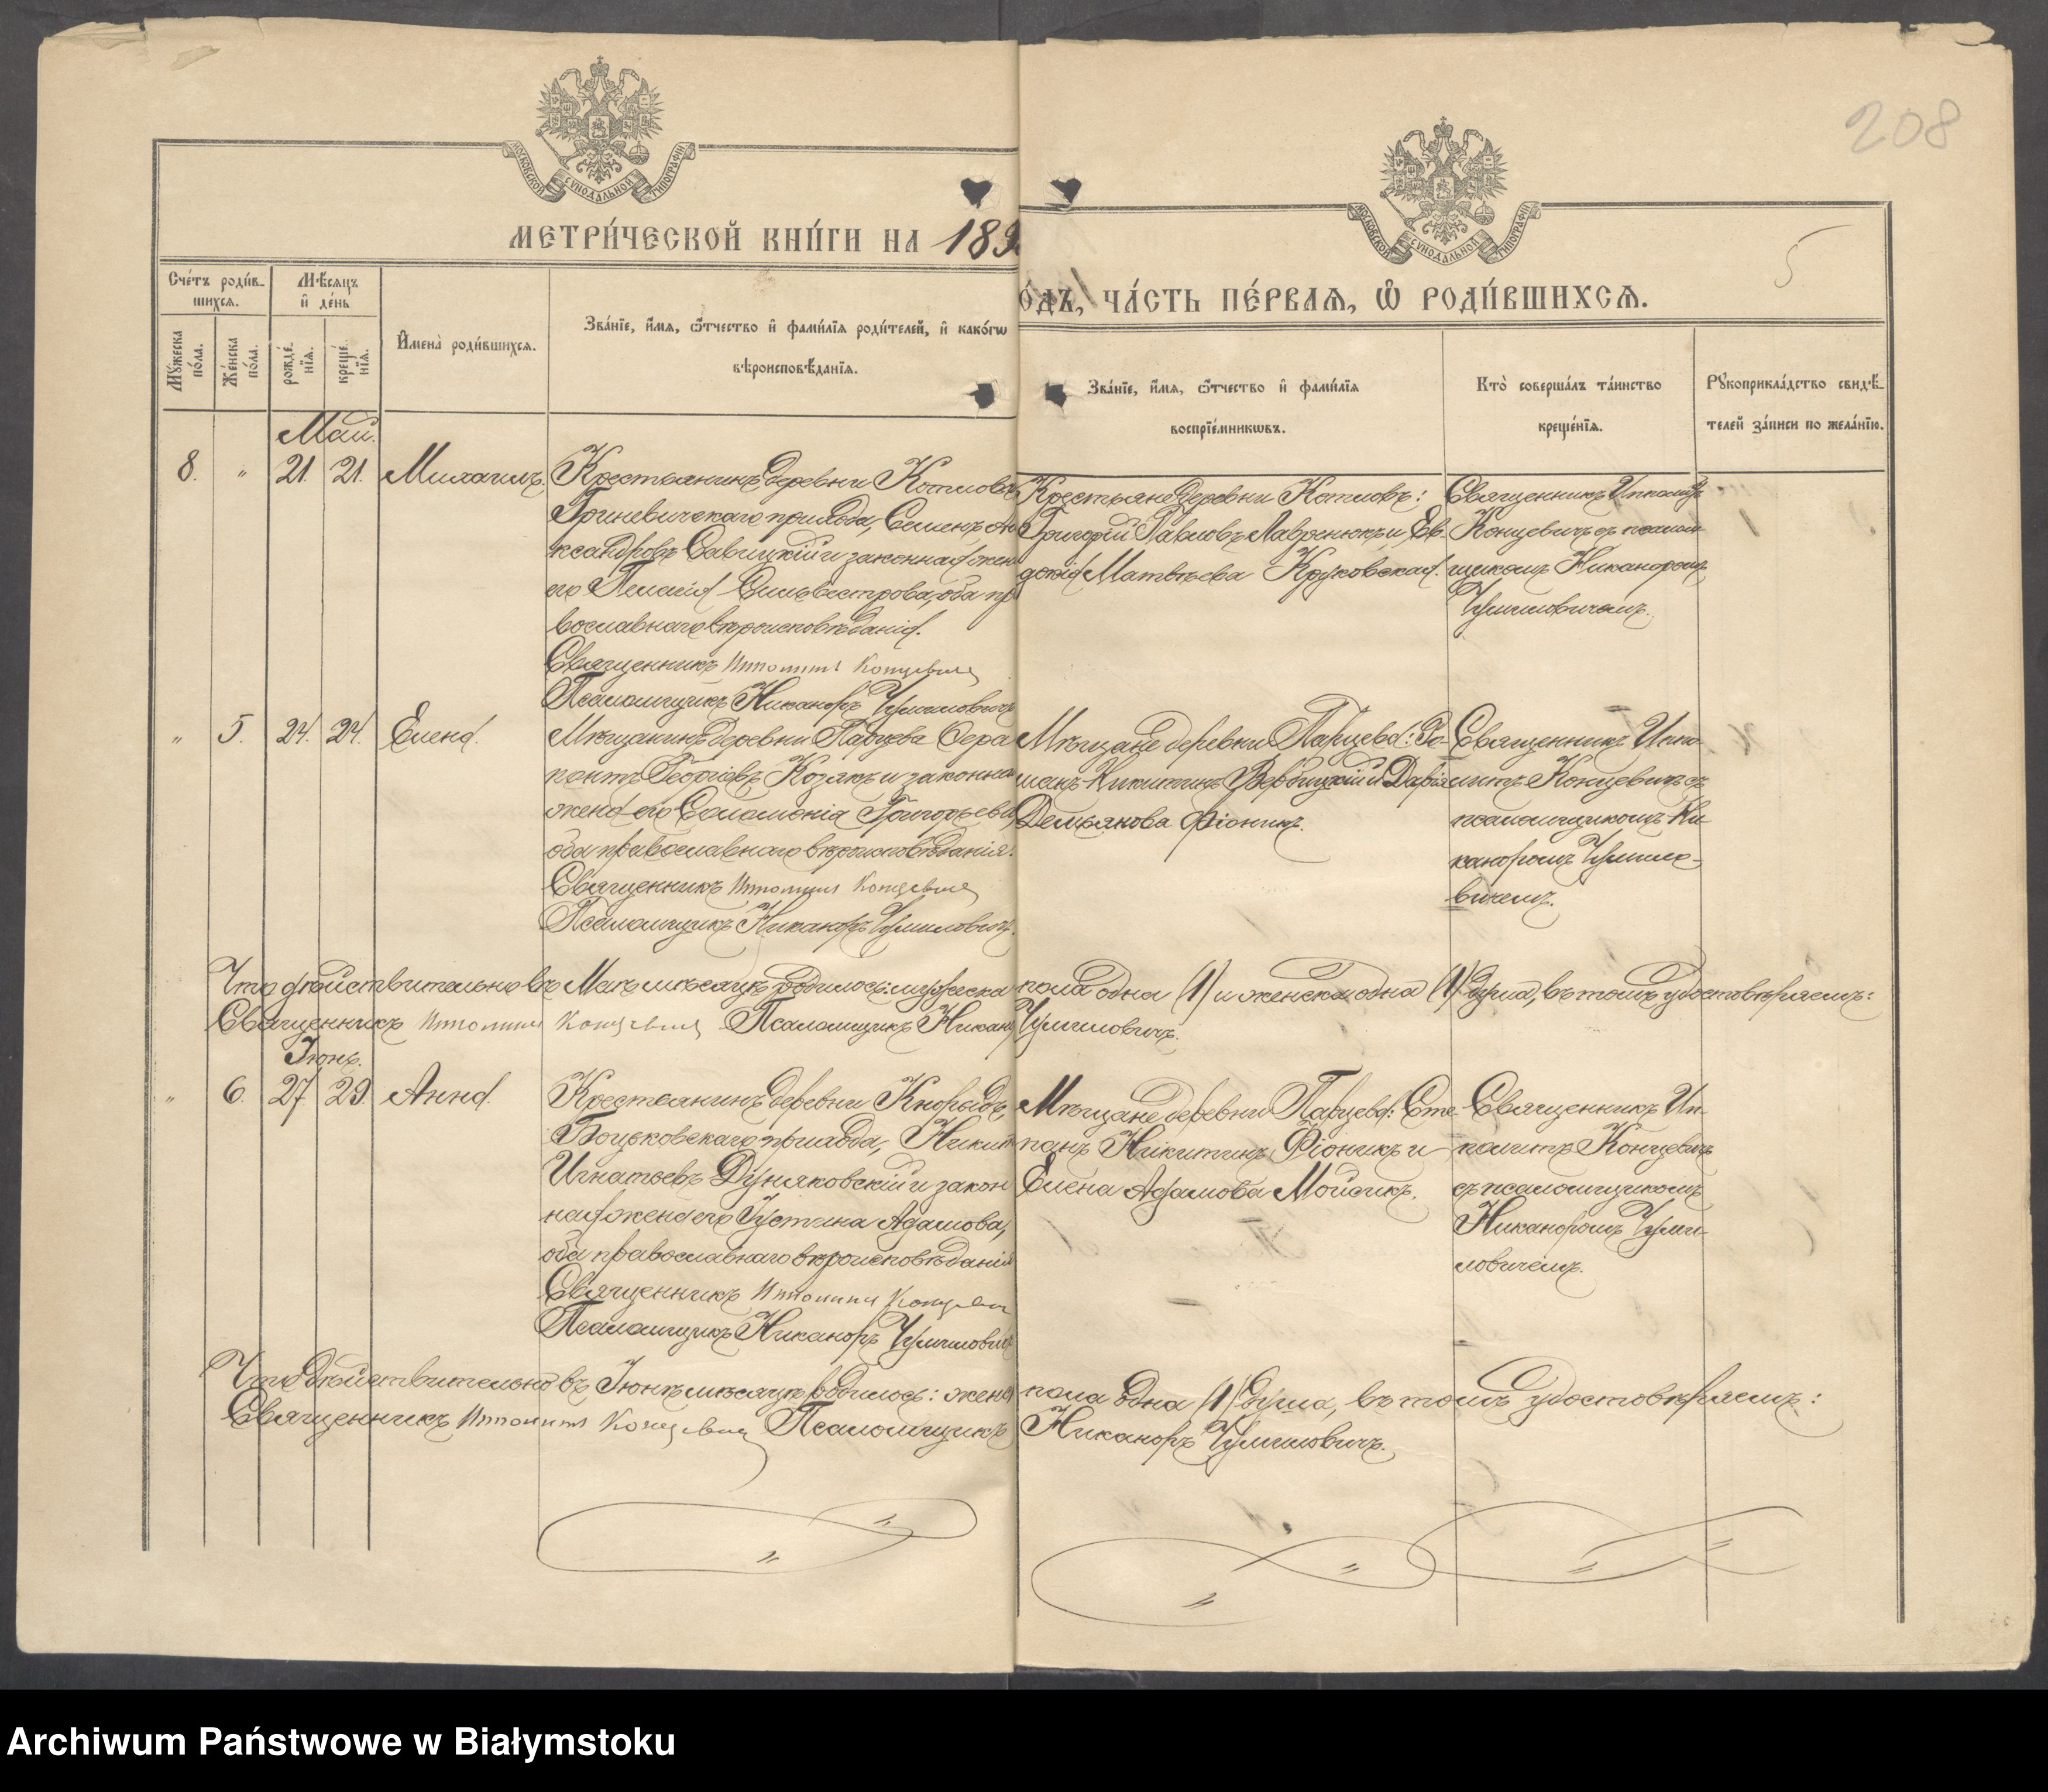 208
МОСКОВСКОЙ СУНОДАЛЬНОЙ ТИПОГРАФІИ
МОСКОВСКОЙ СУНОДАЛЬНОЙ ТИПОГРАФІИ
МЕТРИ́ЧЕСКОЙ КНИ́ГИ НА 189
О́ДЪ, ЧА́СТЬ ПЕ́РВАѦ, Ѽ РОДИ́ВШИХСѦ.
5
Сче́тъ роди́в-
шихсѧ.
Мѣсѧцъ
и҆ де́нь
Мꙋ́жеска по́ла.
Же́нска по́ла.
рожде́-
нїѧ.
креще́-
нїѧ.
И҆мена̀ роди́вшихсѧ.
Зва́нїе, и҆́мѧ, ѻ҆́тчество и҆ фами́лїѧ роди́телей, и҆ како́гѡ
вѣроисповѣ́данїѧ.
Зва́нїе, и҆́мѧ, ѻ҆́тчество и҆ фами́лїѧ
воспрїе́мникѡвъ.
Кто̀ соверша́лъ та́инство
креще́нїѧ.
Рꙋкоприкла́дство свидѣ́-
телей за́писи по жела́нїю.
Май.
8. " 21. 21. Михаилъ.
Крестьянинъ деревни Котловъ
Гриневичскаго прихода, Семенъ Але
ксандровъ Савицкій и законная жен
его Пелагія Сильвестрова, оба пр
вославнаго вѣроисповѣданія.
Священникъ Ипполитъ Концевичъ
Псаломщикъ Никаноръ Чулиловичъ
Крестьяне деревни Котловъ:
Григорій Павловъ Лавренюкъ и Ев-
докія Матвѣева Круковская.
Священникъ Ипполитъ
Концевичъ съ псалом-
щикомъ Никаноромъ
Чулиловичемъ.
" 5. 24. 24. Елена.
Мѣщанинъ деревни Парцева Сера
піонъ Георгіевъ Козакъ и законна
жена его Соломонія Григорьева,
оба православнаго вѣроисповѣданія.
Священникъ Ипполитъ Концевичъ
Псаломщикъ Никаноръ Чулиловичъ.
Мѣщане деревни Парцева: Ро-
манъ Никитинъ Вербицкій и Дарія
Демьянова Фіоникъ.
Священникъ Иппо-
литъ Концевичъ съ
псаломщикомъ Ни-
каноромъ Чулило-
вичемъ.
Что дѣйствительно въ Маѣ мѣсяцѣ родилось: мужеска пола одна (1) и женска одна (1) душа, въ томъ удостовѣряемъ:
Священникъ Ипполитъ Концевичъ Псаломщикъ Никаноръ Чулиловичъ.
Іюнь.
" 6. 27. 29. Анна.
Крестьянинъ деревни Кнорыдъ,
Боцьковскаго прихода, Никит
Игнатьевъ Дуняковскій и закон
ная жена его Іустина Адамова,
оба православнаго вѣроисповѣданія
Священникъ Ипполитъ Концевичъ
Псаломщикъ Никаноръ Чулиловичъ
Мѣщане деревни Парцева: Сте-
панъ Никитинъ Фіоникъ и
Елена Адамова Мойсикъ.
Священникъ Ип-
политъ Концевичъ
съ псаломщикомъ
Никаноромъ Чули-
ловичемъ.
Что дѣйствительно въ Іюнѣ мѣсяцѣ родилось: женска пола одна (1) душа, въ томъ удостовѣряемъ:
Священникъ Ипполитъ Концевичъ Псаломщикъ Никаноръ Чулиловичъ.
Archiwum Państwowe w Białymstoku